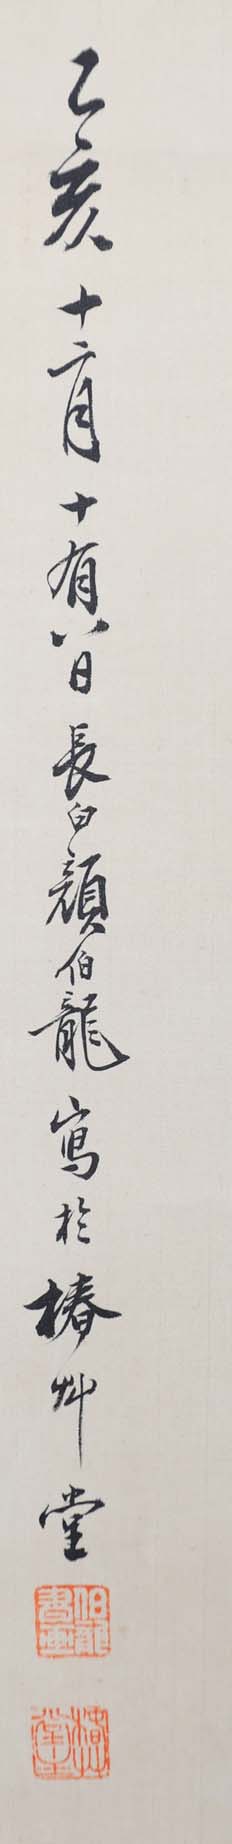 乙亥十二月十有八日長白顔伯龍寫於椿艸堂
伯龍書畫
椿草堂